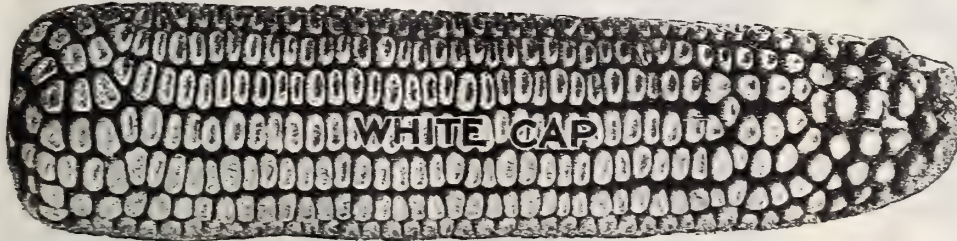 WHITE CAP